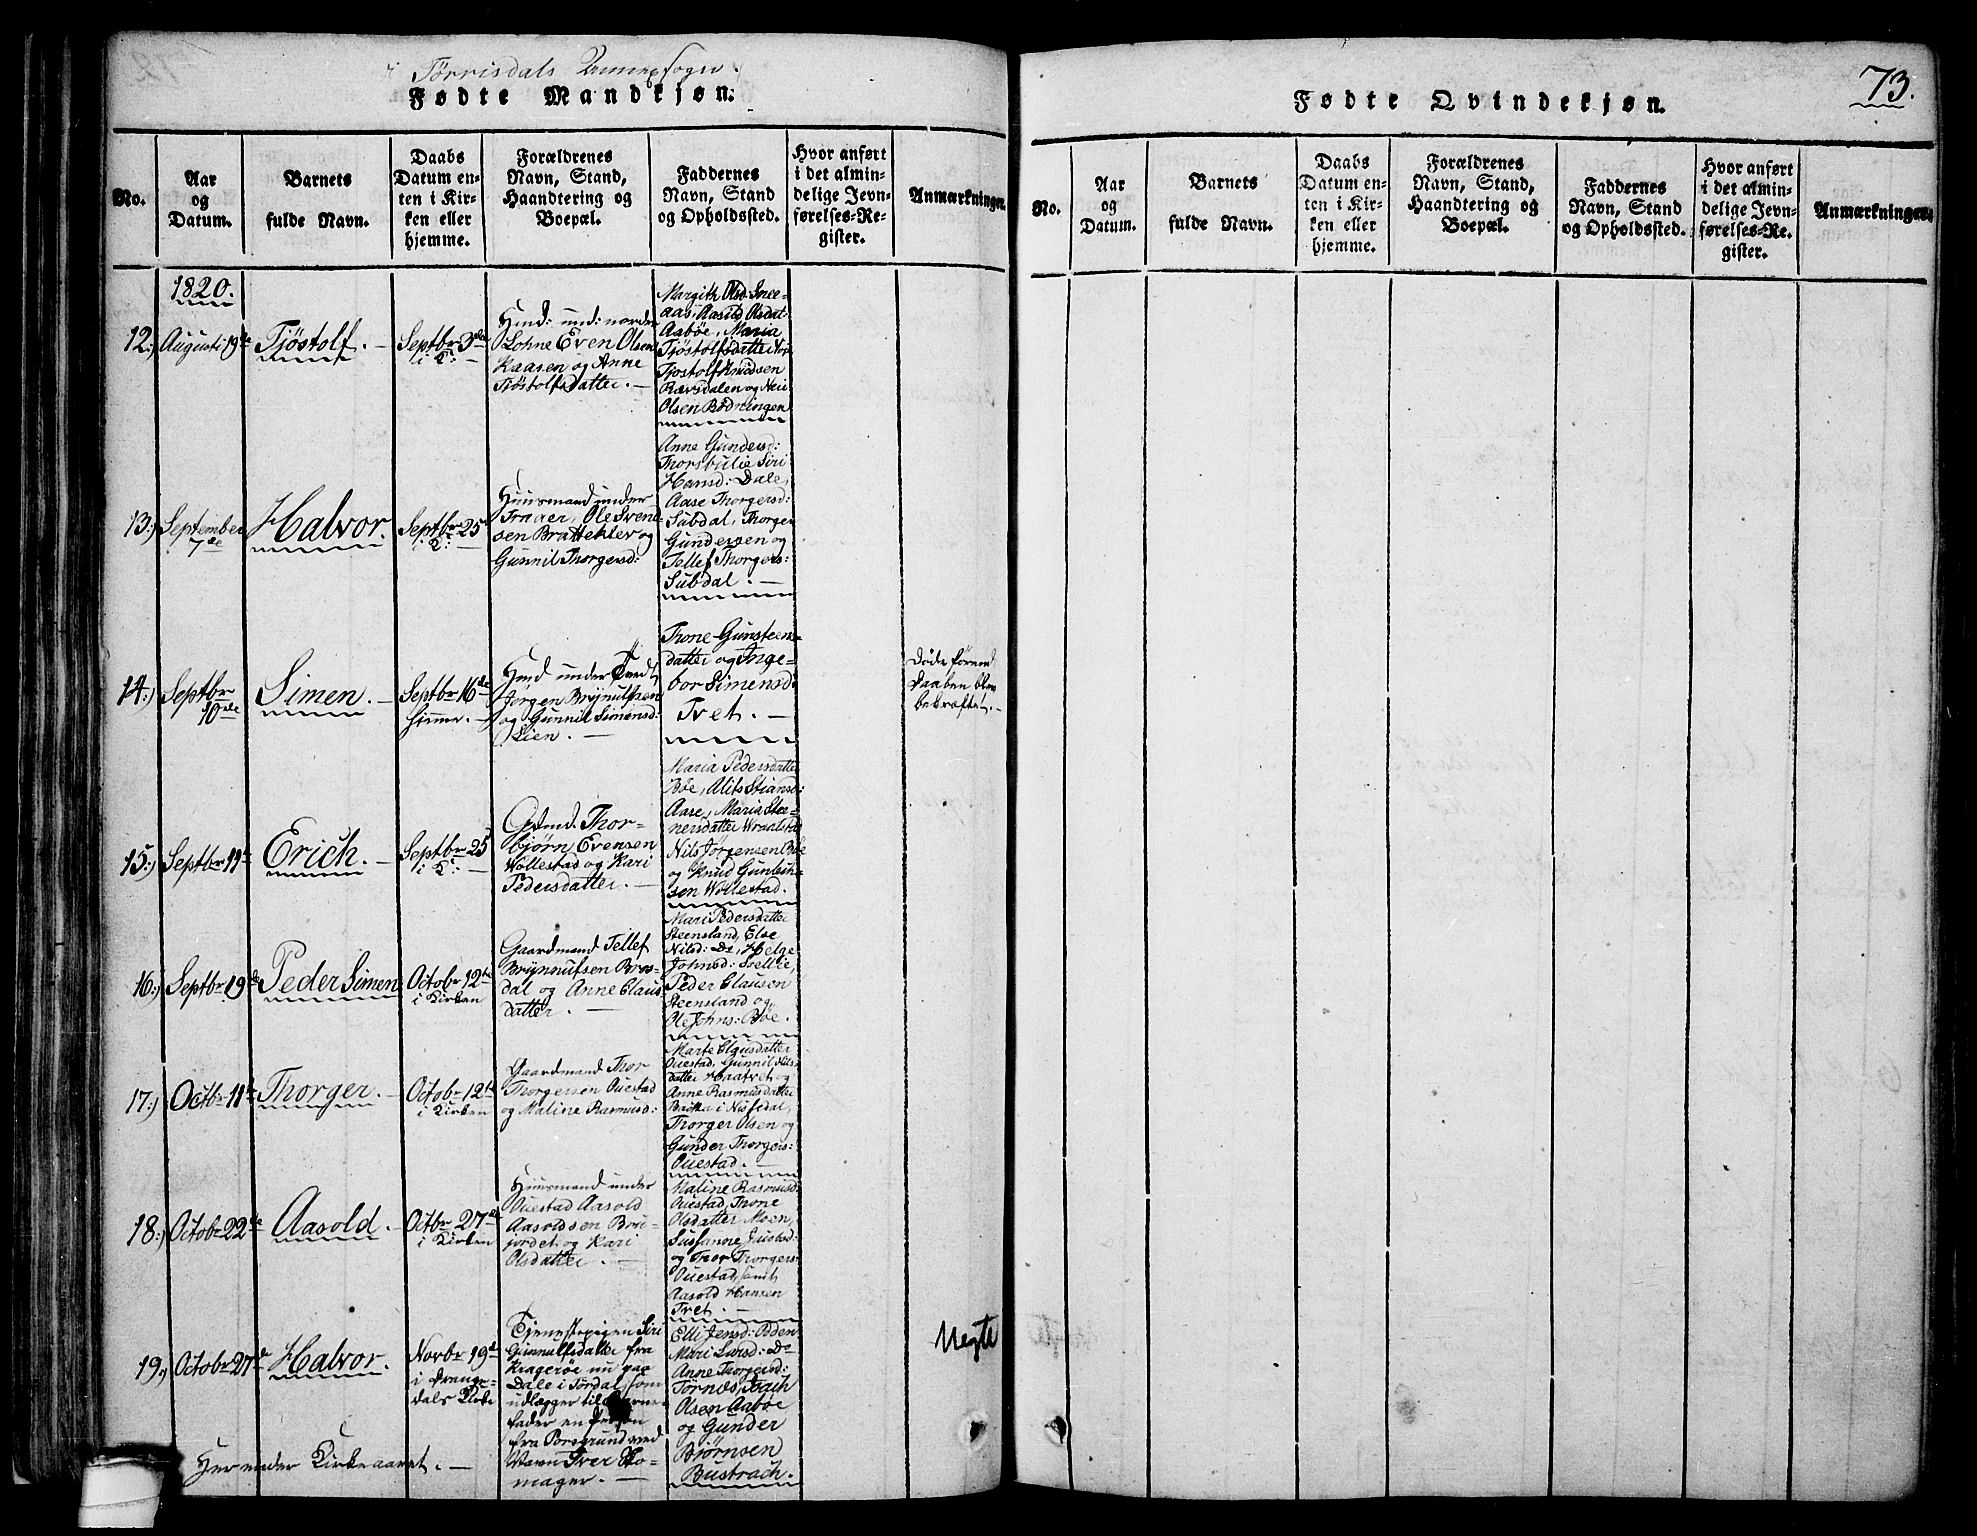 i Tørrisdals Annexsogn.
Fødte Mandkjøn.
No.
Aar
og
Datum.
Barnets
fulde Navn.
Daabs
Datum en-
ten i Kir-
ken eller
hjemme.
Forældrenes
Navn, Stand,
Haandtering og
Boepæl.
Faddernes
Navn, Stand
og Opholdssted.
Hvor anført
i det almin-
delige Jevn-
førelses-Re-
gister.
Anmærkninger.
1820.
12.)
Augusti 19de
Tjöstolf. -
Septbr 3die
i K: -
Huusd: und: nordre
Lohne Even Olsen
Kaasen og Anne
Tjöstolfsdatter. -
Margith Olsd: Snee-
aas, Aasild Olsdat-
Aabøe, Maria
Tjöstolfsdatter
Tjostolf Knudsen
Rævsdalen og
Olsen Bødningen
13.)
September
7de
Halvor.
Septbr 25
i K: -
Huusmand under
Traaer, Ole Svend-
sen Bratteklev og
Gunnil Thorgersd:
Anne Gundersd:
Thorsbulie Siri
Hansd: Dale,
Aase Thorgersd:
Subdal, Thorger
Gundersen og
Tellef Thorgers:
Subdal. -
14.)
Septbr
10de
Simen. -
Septbr 16de
hjemme. -
Hmd under Tvedt,
Jørgen Brynulfsen
og Gunnil Simensd:
Lien. -
Trone Gunsteens-
datter og Inge-
bor Simensd:
Tvet. -
Døde förend
Daaben blev
bekræftet. -
15.)
Septbr 11te
Erich. -
Septbr 25
i K: -
Gdmd. Thor-
bjørn Evensen
Wollestad og Kari
Pedersdatter. -
Maria Pedersdatter
Bøe, Alits Stiansd:
Aase, Maria Ste-
nersdatter Wraalstad
Nils Jørgensen Bøe
og Knud Gunleiu-
sen Wollestad.
16.)
Septbr 19de
Peder Simen
Octobr 12te
i Kirken
Gaardmand Tellef
Brynnulfsen Bros-
dal og Anne Claus
datter. -
Mari Pedersdatter
Steensland, Else
Nilsd: De, Helge
Johnsd:
Peder Clausen
Steensland og
Ole Johns: Bøe.
17.)
Octbr 11te
Thorger. -
Octobr 12te
i Kirken
Gaardmand Thor
Thorgersen Ouestad
og Maline Rasmusd:
Marte Clausdatter
Ouestad, Gunnil Nils
datter Haatvet og
Anne Rasmusdatter
i Nissedal,
Thorger Olsen og
Gunder Thorgers:
Ouestad. -
18.)
Octobr 22de
Aasold. -
Octbr 27de
i Kirken
Huusmand under
Ouestad Aasold
Aasoldsen Bru-
jordet og Kari
Olsdatter. -
Maline Rasmusd:
Ouestad, Thone
Olsdatter Moen,
Susanne Juusd:
og Thor Thorgers:
Ouestad, samt
Aasold Hansen
Tvet. -
19.)
Octobr 27de
Halvor.
Novbr 19de
i Drange-
dals Kirke
Tjenestepigen Siri
Gunnulfsdatter fra
Kragerøe nu paa
Dale i Tørdal, som
udlægger til Barne-
fader en Person
fra Porsgrund ved
Navn Iver Ro-
mager. -
Elli Jensd: Odden
Mari Larsd: De
Anne Thorgersd:
Törnes, Isach
Olsen Aabøe
og Gunder
Bjørnsen
Bustrach.
Uegte
Her ender Kirkeaaret. -
73.
Fødte Qvindekjøn.
No.
Aar
og
Datum.
Barnets
fulde Navn.
Daabs
Datum en-
ten i Kir-
ken eller
hjemme.
Forældrenes
Navn, Stand,
Haandtering og
Boepæl.
Faddernes
Navn, Stand
og Opholdssted.
Hvor anført
i det almin-
delige Jevn-
førelses-Re-
gister.
Anmærkninger.